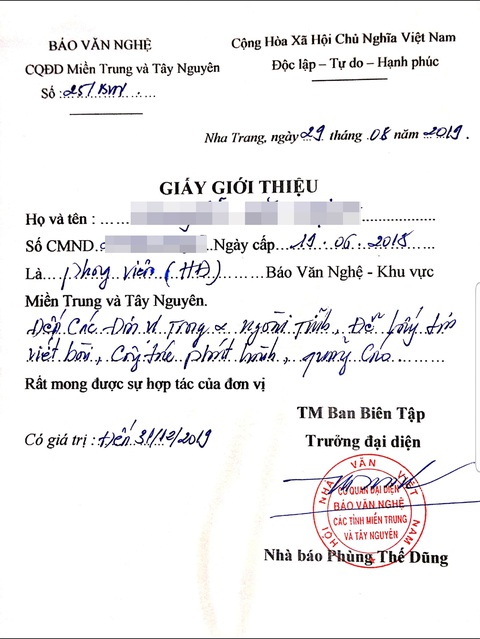 BÁO VĂN NGHỆ
CQĐD Miền Trung và Tây Nguyên
Số : 25/BVN
Cộng Hòa Xã Hội Chủ Nghĩa Việt Nam
Độc lập – Tự do – Hạnh phúc
Nha Trang, ngày 29 tháng 08 năm 2019.
GIẤY GIỚI THIỆU
Họ và tên :
Số CMND. Ngày cấp 19.06.2018
Là phóng viên (HĐ) Báo Văn Nghệ - Khu vực
Miền Trung và Tây Nguyên.
Đến Các Đơn vị Trong & Ngoài Tỉnh, Để lấy tin
viết bài, Công tác phát hành, quảng Cáo
Rất mong được sự hợp tác của đơn vị
TM Ban Biên Tập
Có giá trị : Đến 31/12/2019
Trưởng đại diện
HỘI NHÀ VĂN VIỆT NAM
CƠ QUAN ĐẠI DIỆN
BÁO VĂN NGHỆ
CÁC TỈNH MIỀN TRUNG
VÀ TÂY NGUYÊN
Nhà báo Phùng Thế Dũng